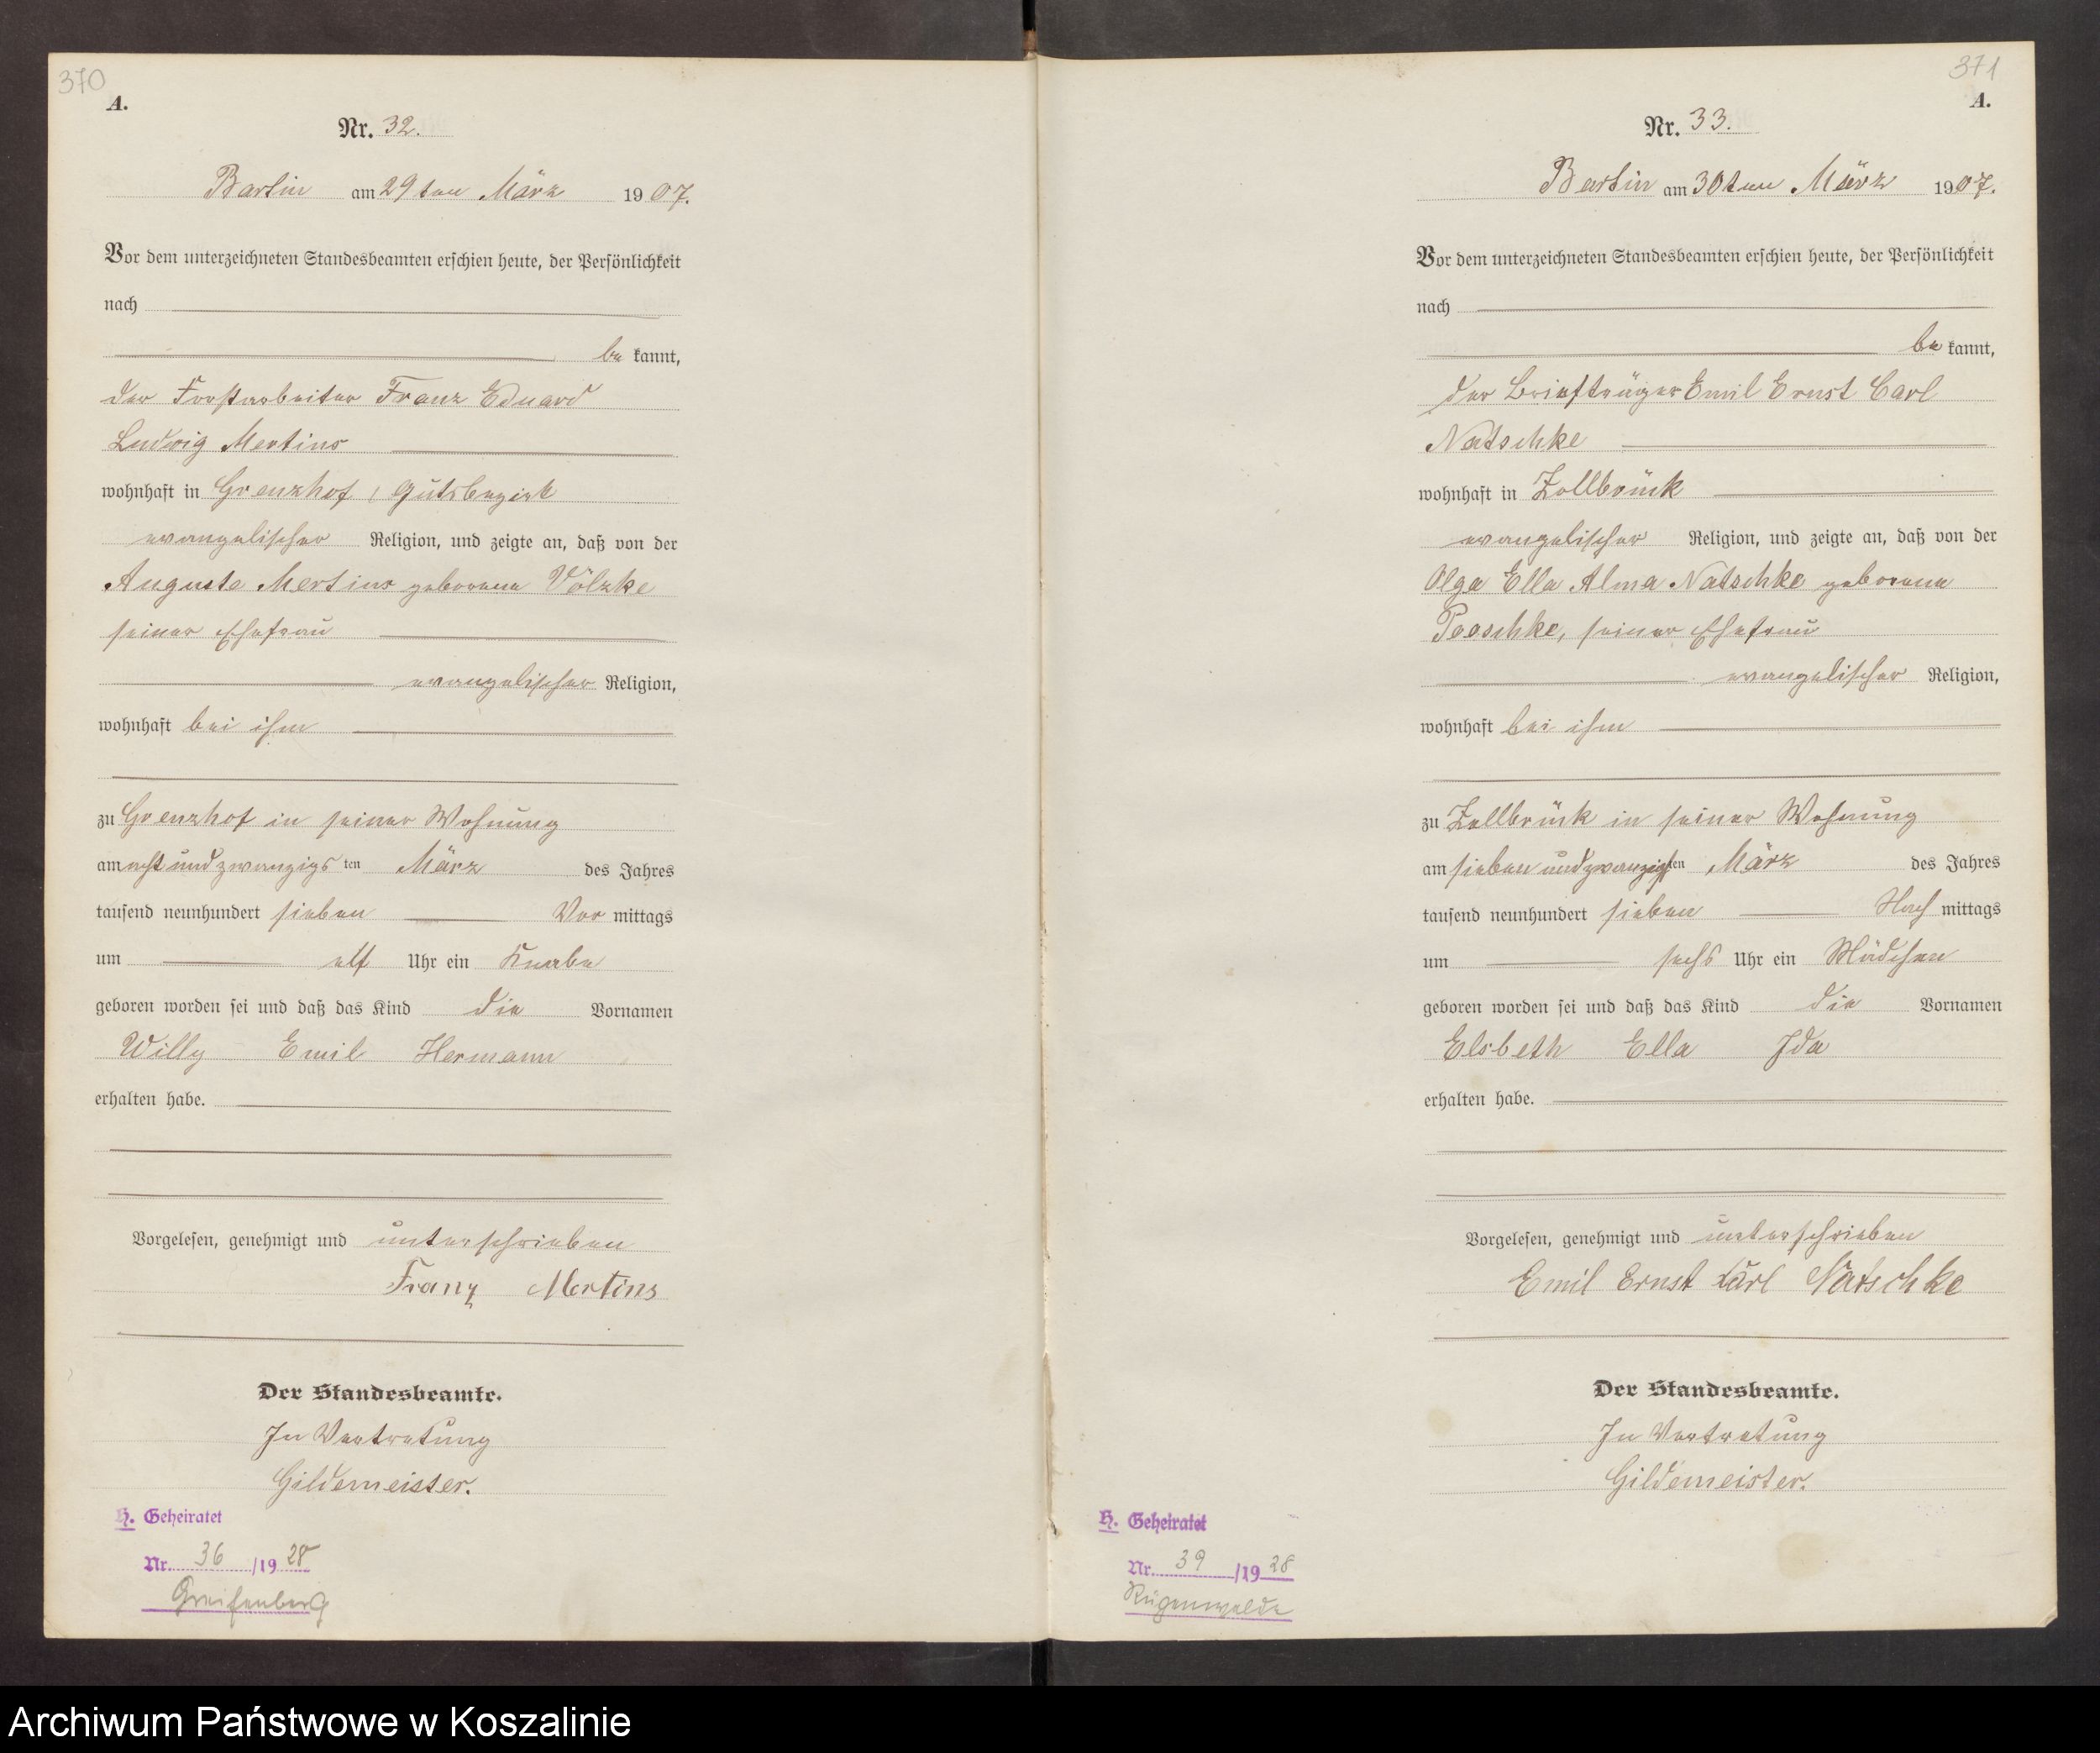 370
A.
Nr. 32.
Bartin am 29ten März 1907.
Vor dem unterzeichneten Standesbeamten erschien heute, der Persönlichkeit
nach
be kannt,
der Forstarbeiter Franz Eduard
Ludwig Mertins
wohnhaft in Grenzhof, Gutsbezirk
evangelischer Religion, und zeigte an, daß von der
Auguste Mertins geborene Völzke
seiner Ehefrau
evangelischer Religion,
wohnhaft bei ihm
zu Grenzhof in seiner Wohnung
am acht und zwanzigs ten März des Jahres
tausend neunhundert sieben Vor mittags
um elf Uhr ein Knabe
geboren worden sei und daß das Kind die Vornamen
Willy Emil Hermann
erhalten habe.
Vorgelesen, genehmigt und unterschrieben
Franz Mertins
Der Standesbeamte.
In Vertretung
Gildemeister.
H. Geheiratet
Nr. 36 /1928
Greifenberg
371
A.
Nr. 33.
Bartin am 30ten März 1907.
Vor dem unterzeichneten Standesbeamten erschien heute, der Persönlichkeit
nach
be kannt,
der Briefträger Emil Ernst Carl
Natschke
wohnhaft in Zollbrück
evangelischer Religion, und zeigte an, daß von der
Olga Ella Alma Natschke geborene
Peeschke, seiner Ehefrau
evangelischer Religion,
wohnhaft bei ihm
zu Zollbrück in seiner Wohnung
am sieben und zwanzigsten März des Jahres
tausend neunhundert sieben Nach mittags
um sechs Uhr ein Mädchen
geboren worden sei und daß das Kind die Vornamen
Elsbeth Ella Ida
erhalten habe.
Vorgelesen, genehmigt und unterschrieben
Emil Ernst Karl Natschke
Der Standesbeamte.
In Vertretung
Gildemeister.
H. Geheiratet
Nr. 39 /1928
Rügenwalde
Archiwum Państwowe w Koszalinie